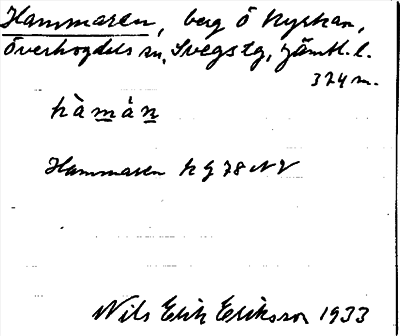 Hammaren, berg Ö kyrkan,
Överhogdals sn, Svegs tg, Jämtl. l.
324 m.
hàmán
Hammaren kg 78 NV
Nils Erik Eriksson 1933